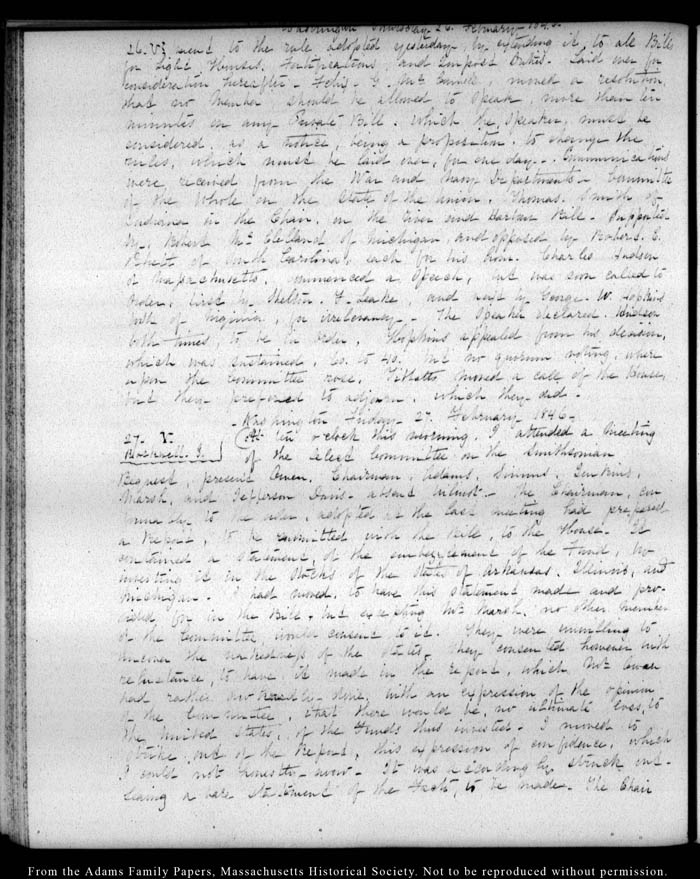 Washington Thursday 26. February 1846.
26. V. ment to the rule adopted yesterday, by extending it, to all Bills
for Light Houses, Fortifications and Impost Duties. Laid over for
consideration hereafter. Felix G. Mc Connell, moved a resolution,
that no Member should be allowed to speak, more than ten
minutes on any Private Bill. which the Speaker, must be
considered, as a notice, being a proposition, to change the
rules, which must be laid over, for one day. Communications
were received from the War and Navy Departments. Committee
of the Whole on the State of the Union, Thomas Smith of
Indiana in the Chair, on the River and Harbour Bill. Supported
by, Robert Mc Clelland of Michigan, and opposed by Robert B.
Rhett of South Carolina, each for his hour. Charles Hudson
of Massachusetts, commenced a Speech, but was soon called to
order, first by Shelton F. Leake, and next by George W. Hopkins
both of Virginia, for irrelevancy. The Speaker declared Hudson
both times to be in order, Hopkins appealed from his decision,
which was sustained, 60. to 40. but no quorum voting, where
upon the committee rose. Tibbatts moved a call of the House,
but they preferred to adjourn, which they did.
Washington Friday 27. February 1846.
27. V. At ten o'clock this morning, I attended a Meeting
of the Select Committee on the Smithsonian
Bequest, present Owen, Chairman, Adams, Simms, Jenkins,
Marsh, and Jefferson Davis. absent The Chairman, con
formably to the rule, adopted at the last meeting had prepared
a Report, to be committed with the Bill, to the House. It
contained a statement, of the embezzlement of the Fund, by
investing it in the Stocks of the States of Arkansas, Illinois, and
Michigan. I had moved, to have this statement made and pro-
vided for in the Bill, but excepting Mr Marsh, no other member
of the Committee, would consent to it. They were unwilling to
uncover the nakedness of the States. They consented however with
reluctance, to have it made in the report, which Mr Owen
had rather awkwardly done, with an expression of the opinion
of the Committee, that there would be, no ultimate loss, to
the United States, of the Funds thus invested. I moved to
strike out of the Report, this expression of confidence, which
I could not honestly avow. It was accordingly struck out
leaving a bare statement of the facts, to be made. The Chair
From the Adams Family Papers, Massachusetts Historical Society. Not to be reproduced without permission.